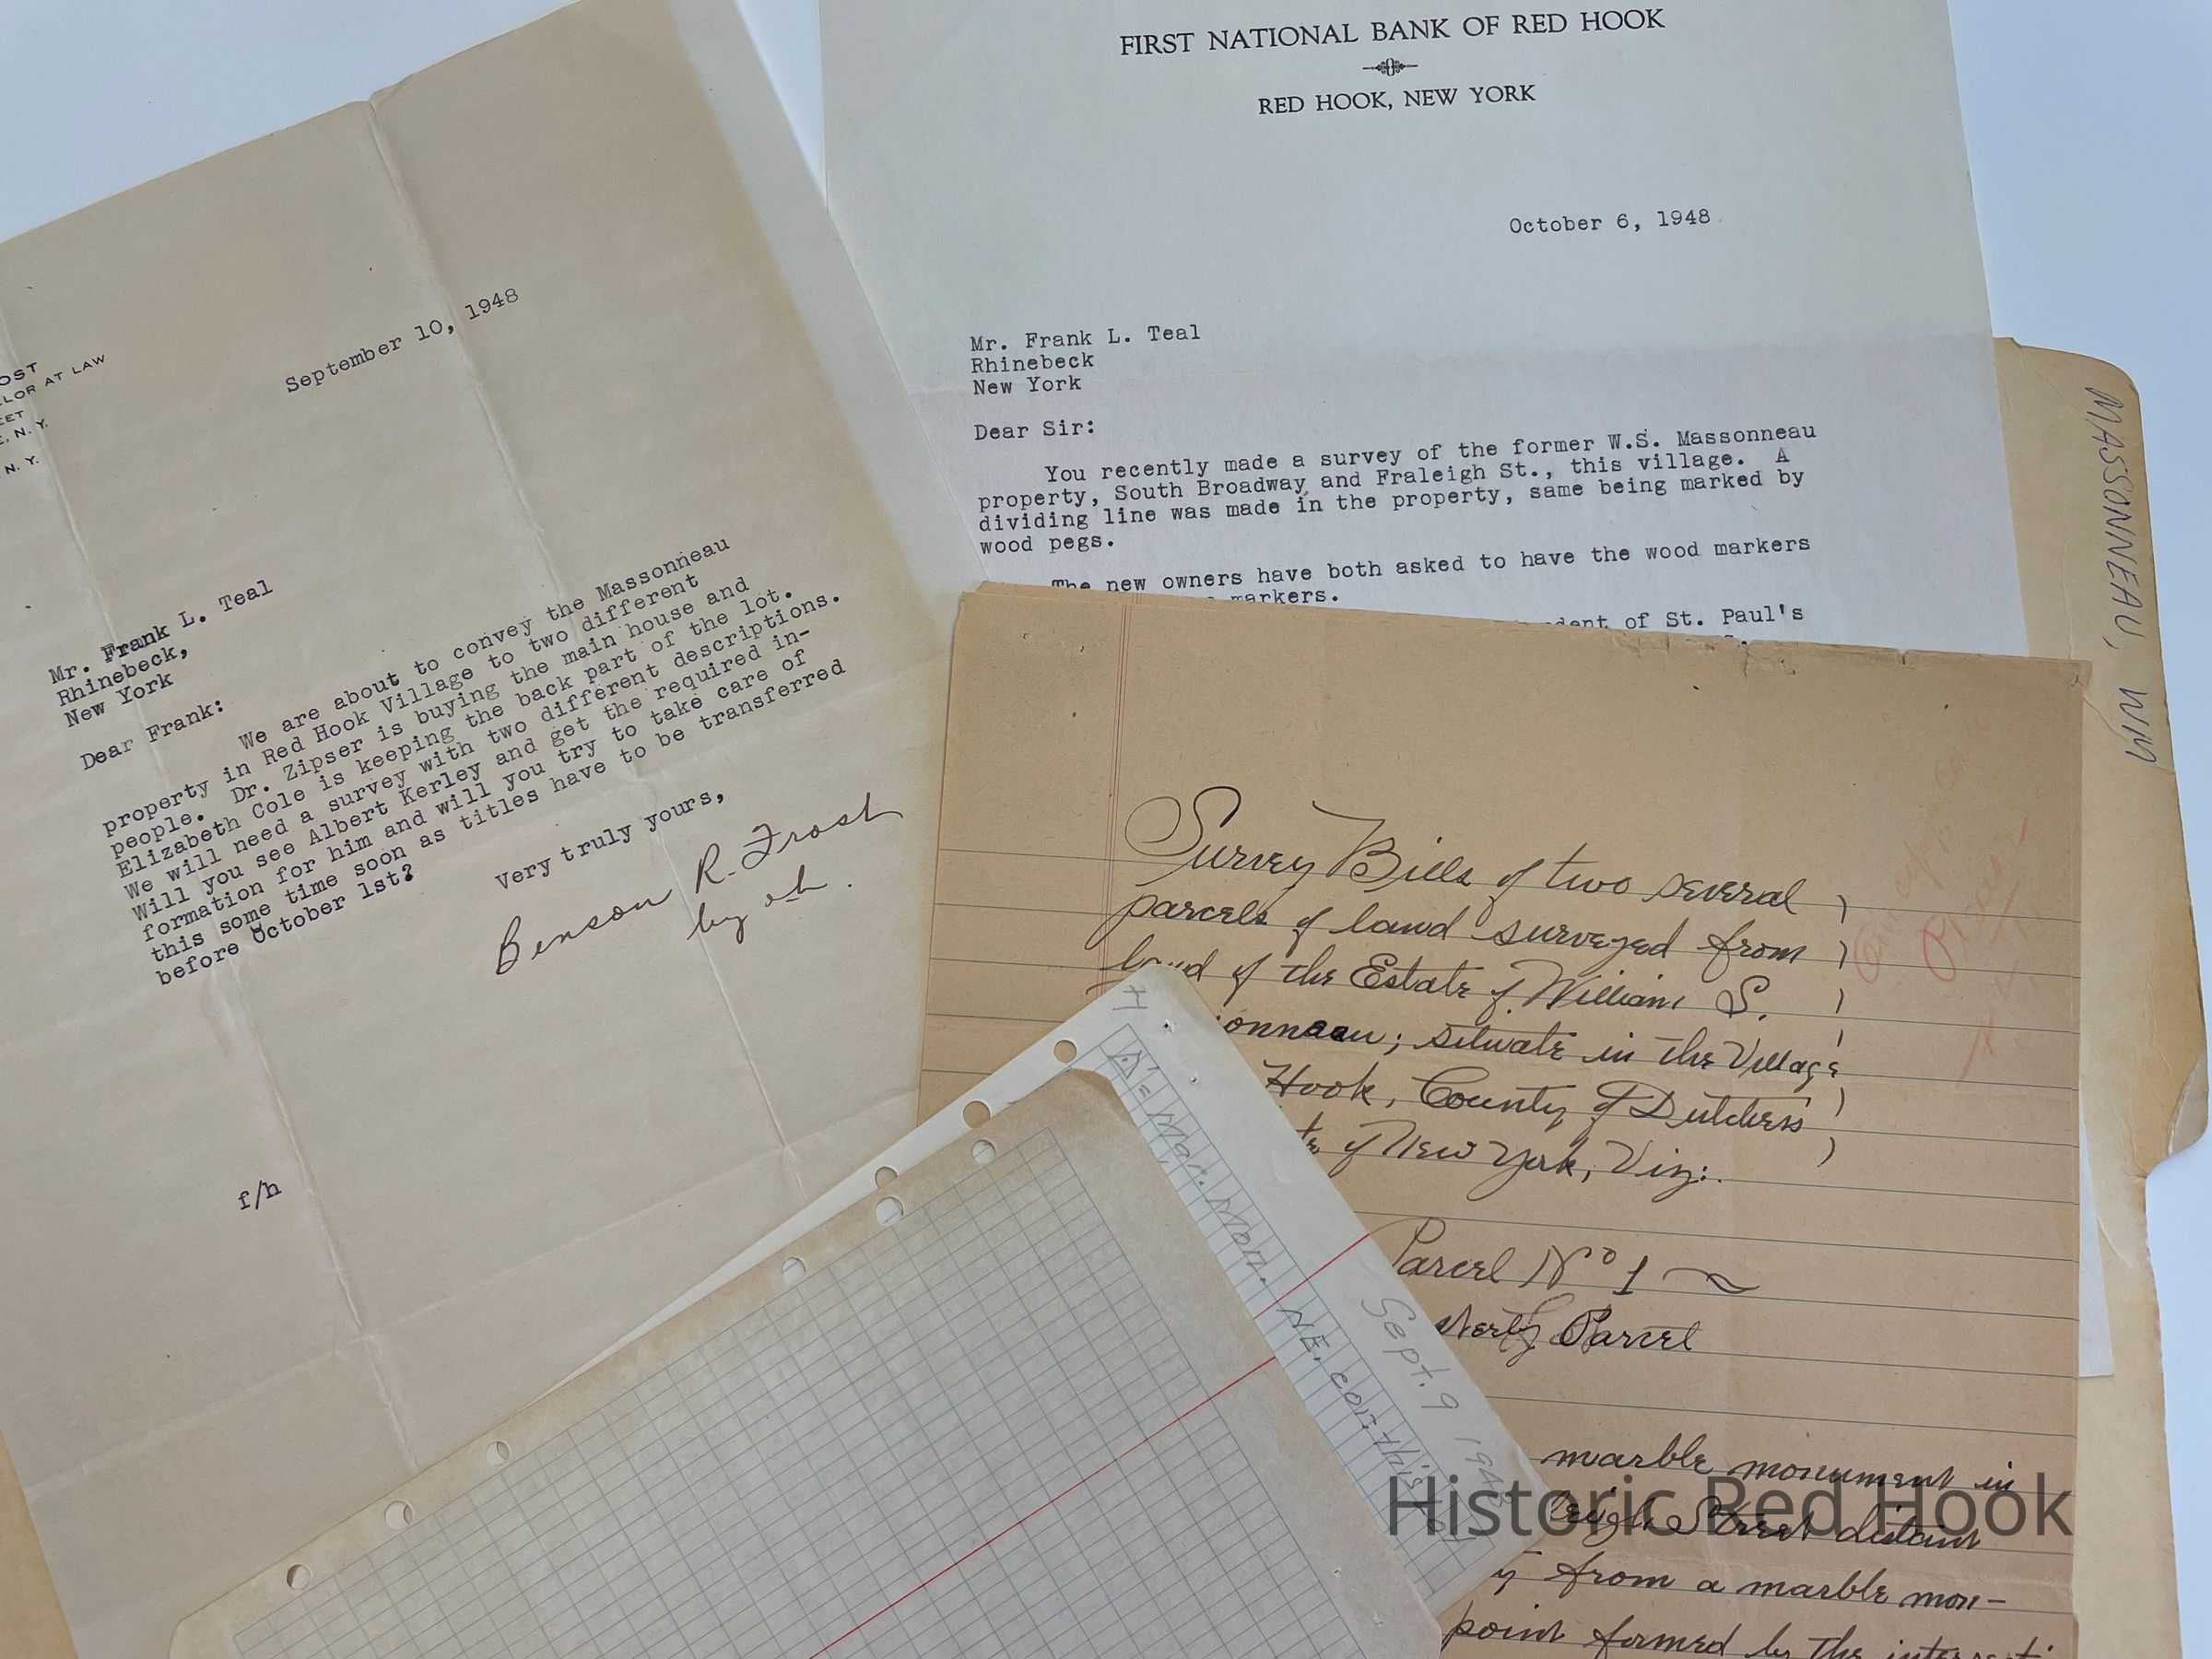 OST
LLOR AT LAW
EET
E, N. Y.
N. Y.
September 10, 1948
Mr. Frank L. Teal
Rhinebeck,
New York
Dear Frank:
We are about to convey the Massonneau
property in Red Hook Village to two different
people. Dr. Zipser is buying the main house and
Elizabeth Cole is keeping the back part of the lot.
We will need a survey with two different descriptions.
Will you see Albert Kerley and get the required in-
formation for him and will you try to take care of
this some time soon as titles have to be transferred
before October 1st?
Very truly yours,
Benson R. Frost
by
f/h
FIRST NATIONAL BANK OF RED HOOK
RED HOOK, NEW YORK
October 6, 1948.
Mr. Frank L. Teal
Rhinebeck
New York
Dear Sir:
You recently made a survey of the former W.S. Massonneau
property, South Broadway and Fraleigh St., this village. A
dividing line was made in the property, same being marked by
wood pegs.
The new owners have both asked to have the wood markers
markers.
dent of St. Paul's
MASSONNEAU, WM
Survey Bills of two several
parcels of land surveyed from
land of the Estate of William S.
onneau; situate in the Village
Hook, County of Dutchess
of New York, Viz:.
Parcel No 1
sterly Parcel
marble monument in
leigh Street distant
y from a marble mon-
point formed by the intersecti
H
Δ = Mar. Mon. NE. cor. this
Sept. 9 1948
Historic Red Hook